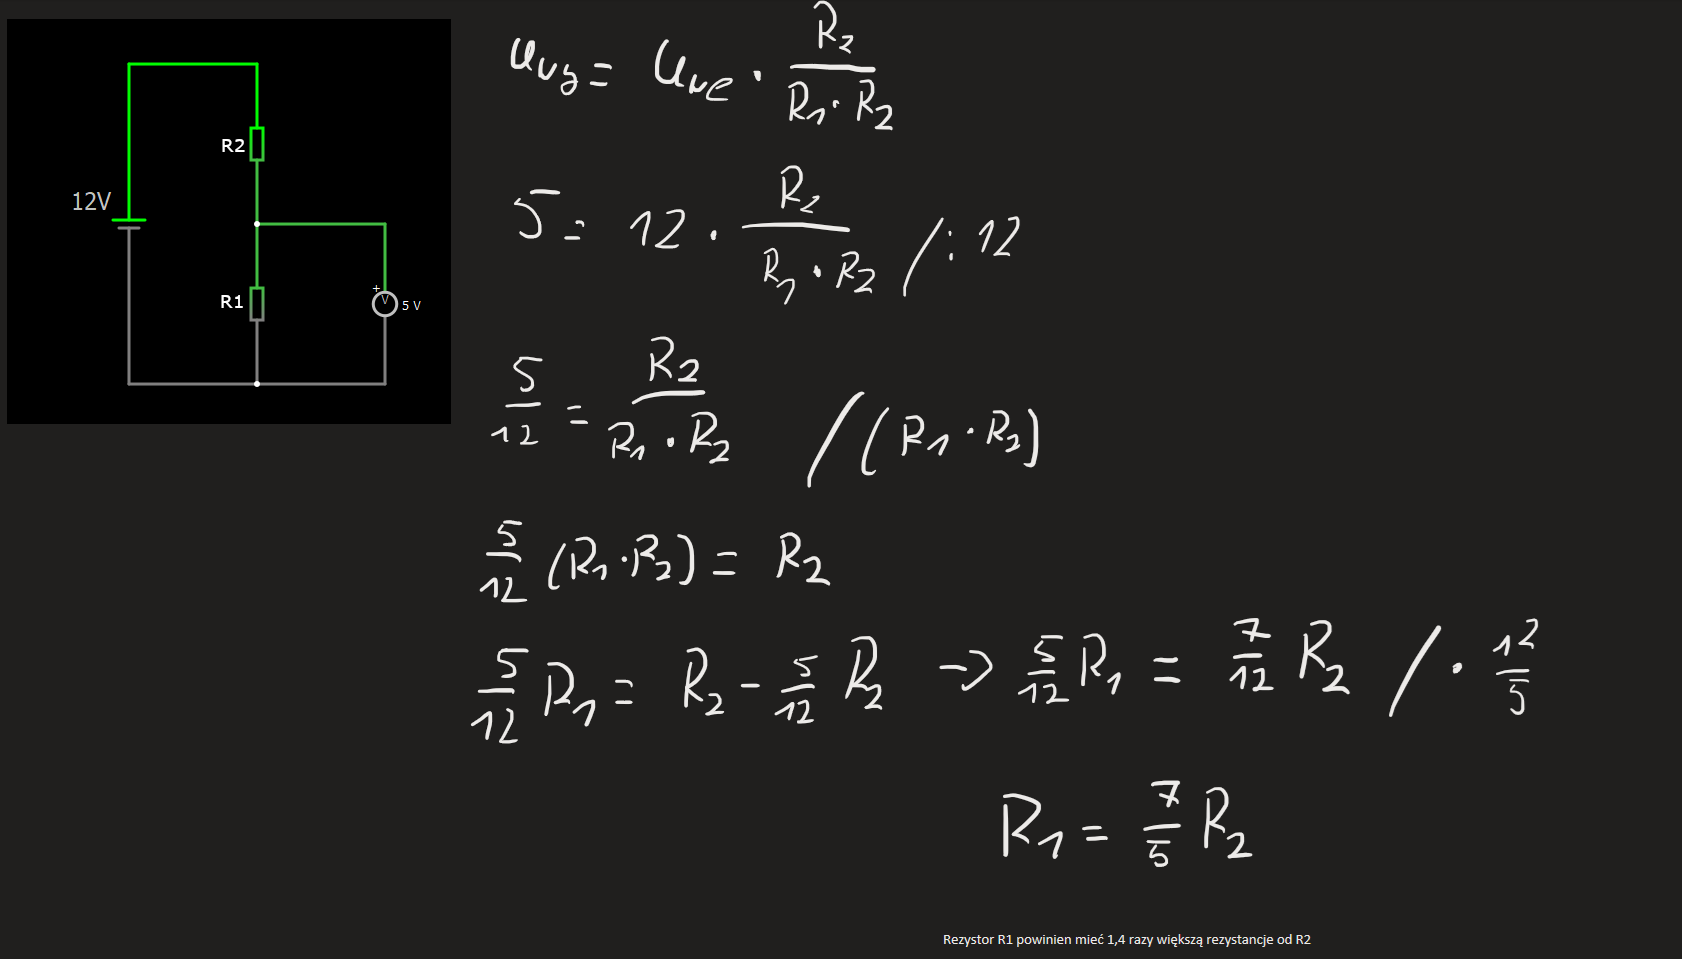 12V
R2
R1
+
V
5 V
Uwy = Uwe · R2/(R1 · R2)
5 = 12 · R2/(R1 · R2) / : 12
5/12 = R2/(R1 · R2) / (R1 · R2)
5/12 (R1 · R2) = R2
5/12 R1 = R2 - 5/12 R2 -> 5/12 R1 = 7/12 R2 / · 12/5
R1 = 7/5 R2
Rezystor R1 powinien mieć 1,4 razy większą rezystancje od R2